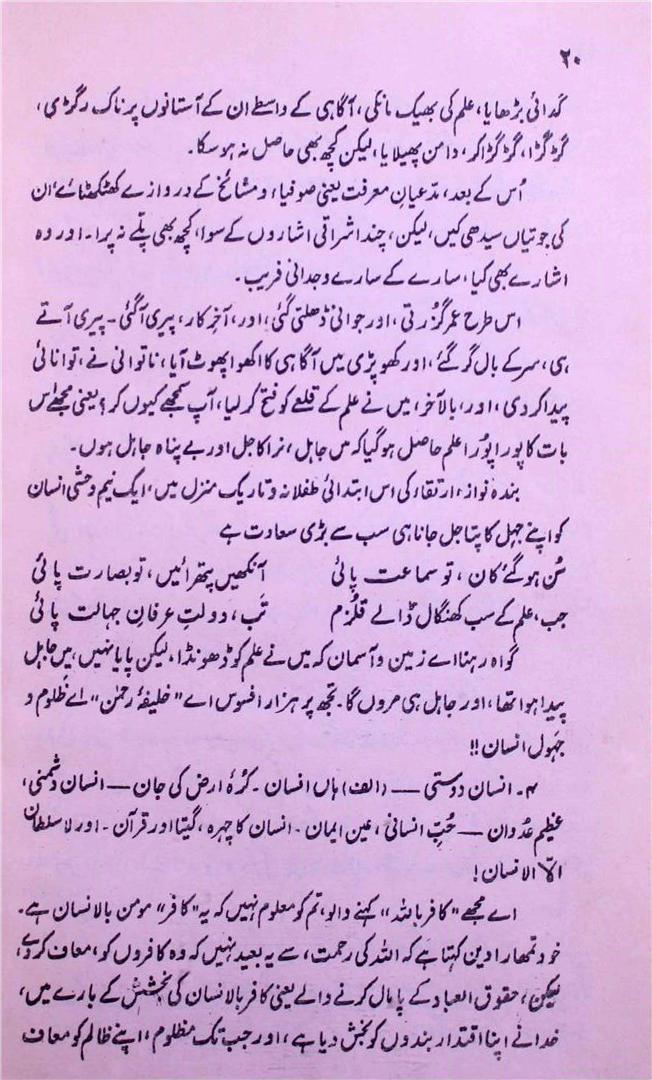 ۲۰
گدائی بڑھایا، علم کی بھیک مانگی، آگاہی کے واسطے ان کے آستانوں پر ناک رگڑی،
گڑگڑا، گڑگڑا کر، دامن پھیلایا، لیکن کچھ بھی حاصل نہ ہو سکا۔
اُس کے بعد، مدّعیانِ معرفت یعنی صوفیاء و مشائخ کے دروازے کھٹکھٹائے، ان
کی جوتیاں سیدھی کیں، لیکن، چند اشراقی اشاروں کے سوا، کچھ بھی پلّے نہ پرا۔ اور وہ
اشارے بھی کیا، سارے کے سارے وجدانی فریب۔
اس طرح عمر گزُرتی، اور جوانی ڈھلتی گئی؛ اور، آخرِ کار، پیری آگئی۔ پیری آتے
ہی، سر کے بال گر گئے، اور کھوپڑی میں آگاہی کا اکھوا پھوٹ آیا، ناتوانی نے، توانائی
پیدا کر دی، اور، بالآخر، میں نے علم کے قلعے کو فتح کر لیا، آپ سمجھے کیوں کر؟ یعنی مجھے اس
بات کا پورا پُورا علم حاصل ہوگیا کہ میں جاہل، نرا کاجل اور بے پناہ جاہل ہوں۔
بندہ نواز، ارتقاء کی اس ابتدائی طفلانہ و تاریک منزل میں، ایک نیم وحشی انسان
کو اپنے جہل کا پتا چل جانا ہی سب سے بڑی سعادت ہے
سُن ہوگئے کان، تو سماعت پائی آنکھیں پتھرائیں، تو بصارت پائی
جب، علم کے سب کھنگال ڈالے قلزُم تب، دولتِ عرفانِ جہالت پائی
گواہ رہنا اے زمین و آسمان کہ میں نے علم کو ڈھونڈا، لیکن پایا نہیں، میں جاہل
پیدا ہوا تھا، اور جاہل ہی مروں گا۔ تجھ پر ہزار افسوس اے "خلیفۂ رحمٰن" اے ظلوم و
جہول انسان!!
۴۔ انسان دوستی — (الف) ہاں انسان۔ کرۂ ارض کی جان — انسان دشمنی،
عظیم عُدوان — حُبِّ انسانی، عین ایمان۔ انسان کا چہرہ، گیتا اور قرآن۔ اور لا سلطان
الّا الانسان!
اے مجھے "کافر باللہ" کہنے والو، تم کو معلوم نہیں کہ یہ "کافر" مومن بالانسان ہے۔
خود تمھارا دین کہتا ہے کہ اللہ کی رحمت، سے یہ بعید نہیں کہ وہ کافروں کو، معاف کر دے،
لیکن، حقوق العباد کے پامال کرنے والے یعنی کافر بالانسان کی بخشش کے بارے میں،
خدا نے اپنا اقتدار بندوں کو بخش دیا ہے، اور جب تک مظلوم، اپنے ظالم کو معاف